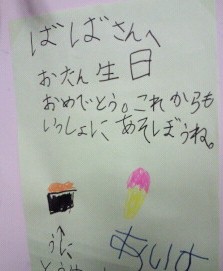 ばばさんへ
おたん生日
おめでとう。これからも
いっしょにあそぼうね。
↑
うに